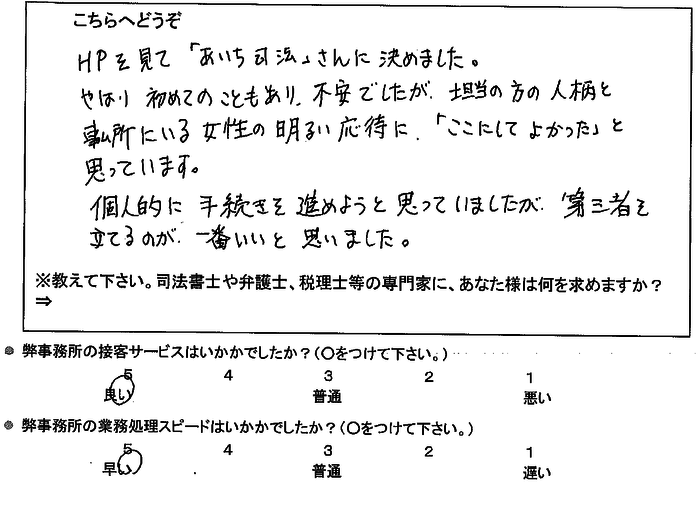 こちらへどうぞ
HPを見て「あいち司法」さんに決めました。
やはり初めてのこともあり、不安でしたが、担当の方の人柄と
事ム所にいる女性の明るい応待に、「ここにしてよかった」と
思っています。
個人的に手続きを進めようと思っていましたが、第三者を
立てるのが、一番いいと思いました。
※教えて下さい。司法書士や弁護士、税理士等の専門家に、あなた様は何を求めますか?
⇒
● 弊事務所の接客サービスはいかかでしたか?(〇をつけて下さい。)
5 4 3 2 1
良い 普通 悪い
● 弊事務所の業務処理スピードはいかかでしたか?(〇をつけて下さい。)
5 4 3 2 1
早い 普通 遅い